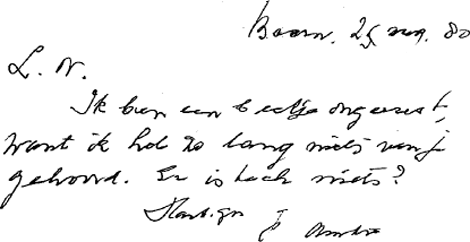 Baarn, 25 aug. 80
L. N.
Ik ben een beetje ongerust,
want ik heb zo lang niets van je
gehoord. Er is toch niets?
Hart. gr.